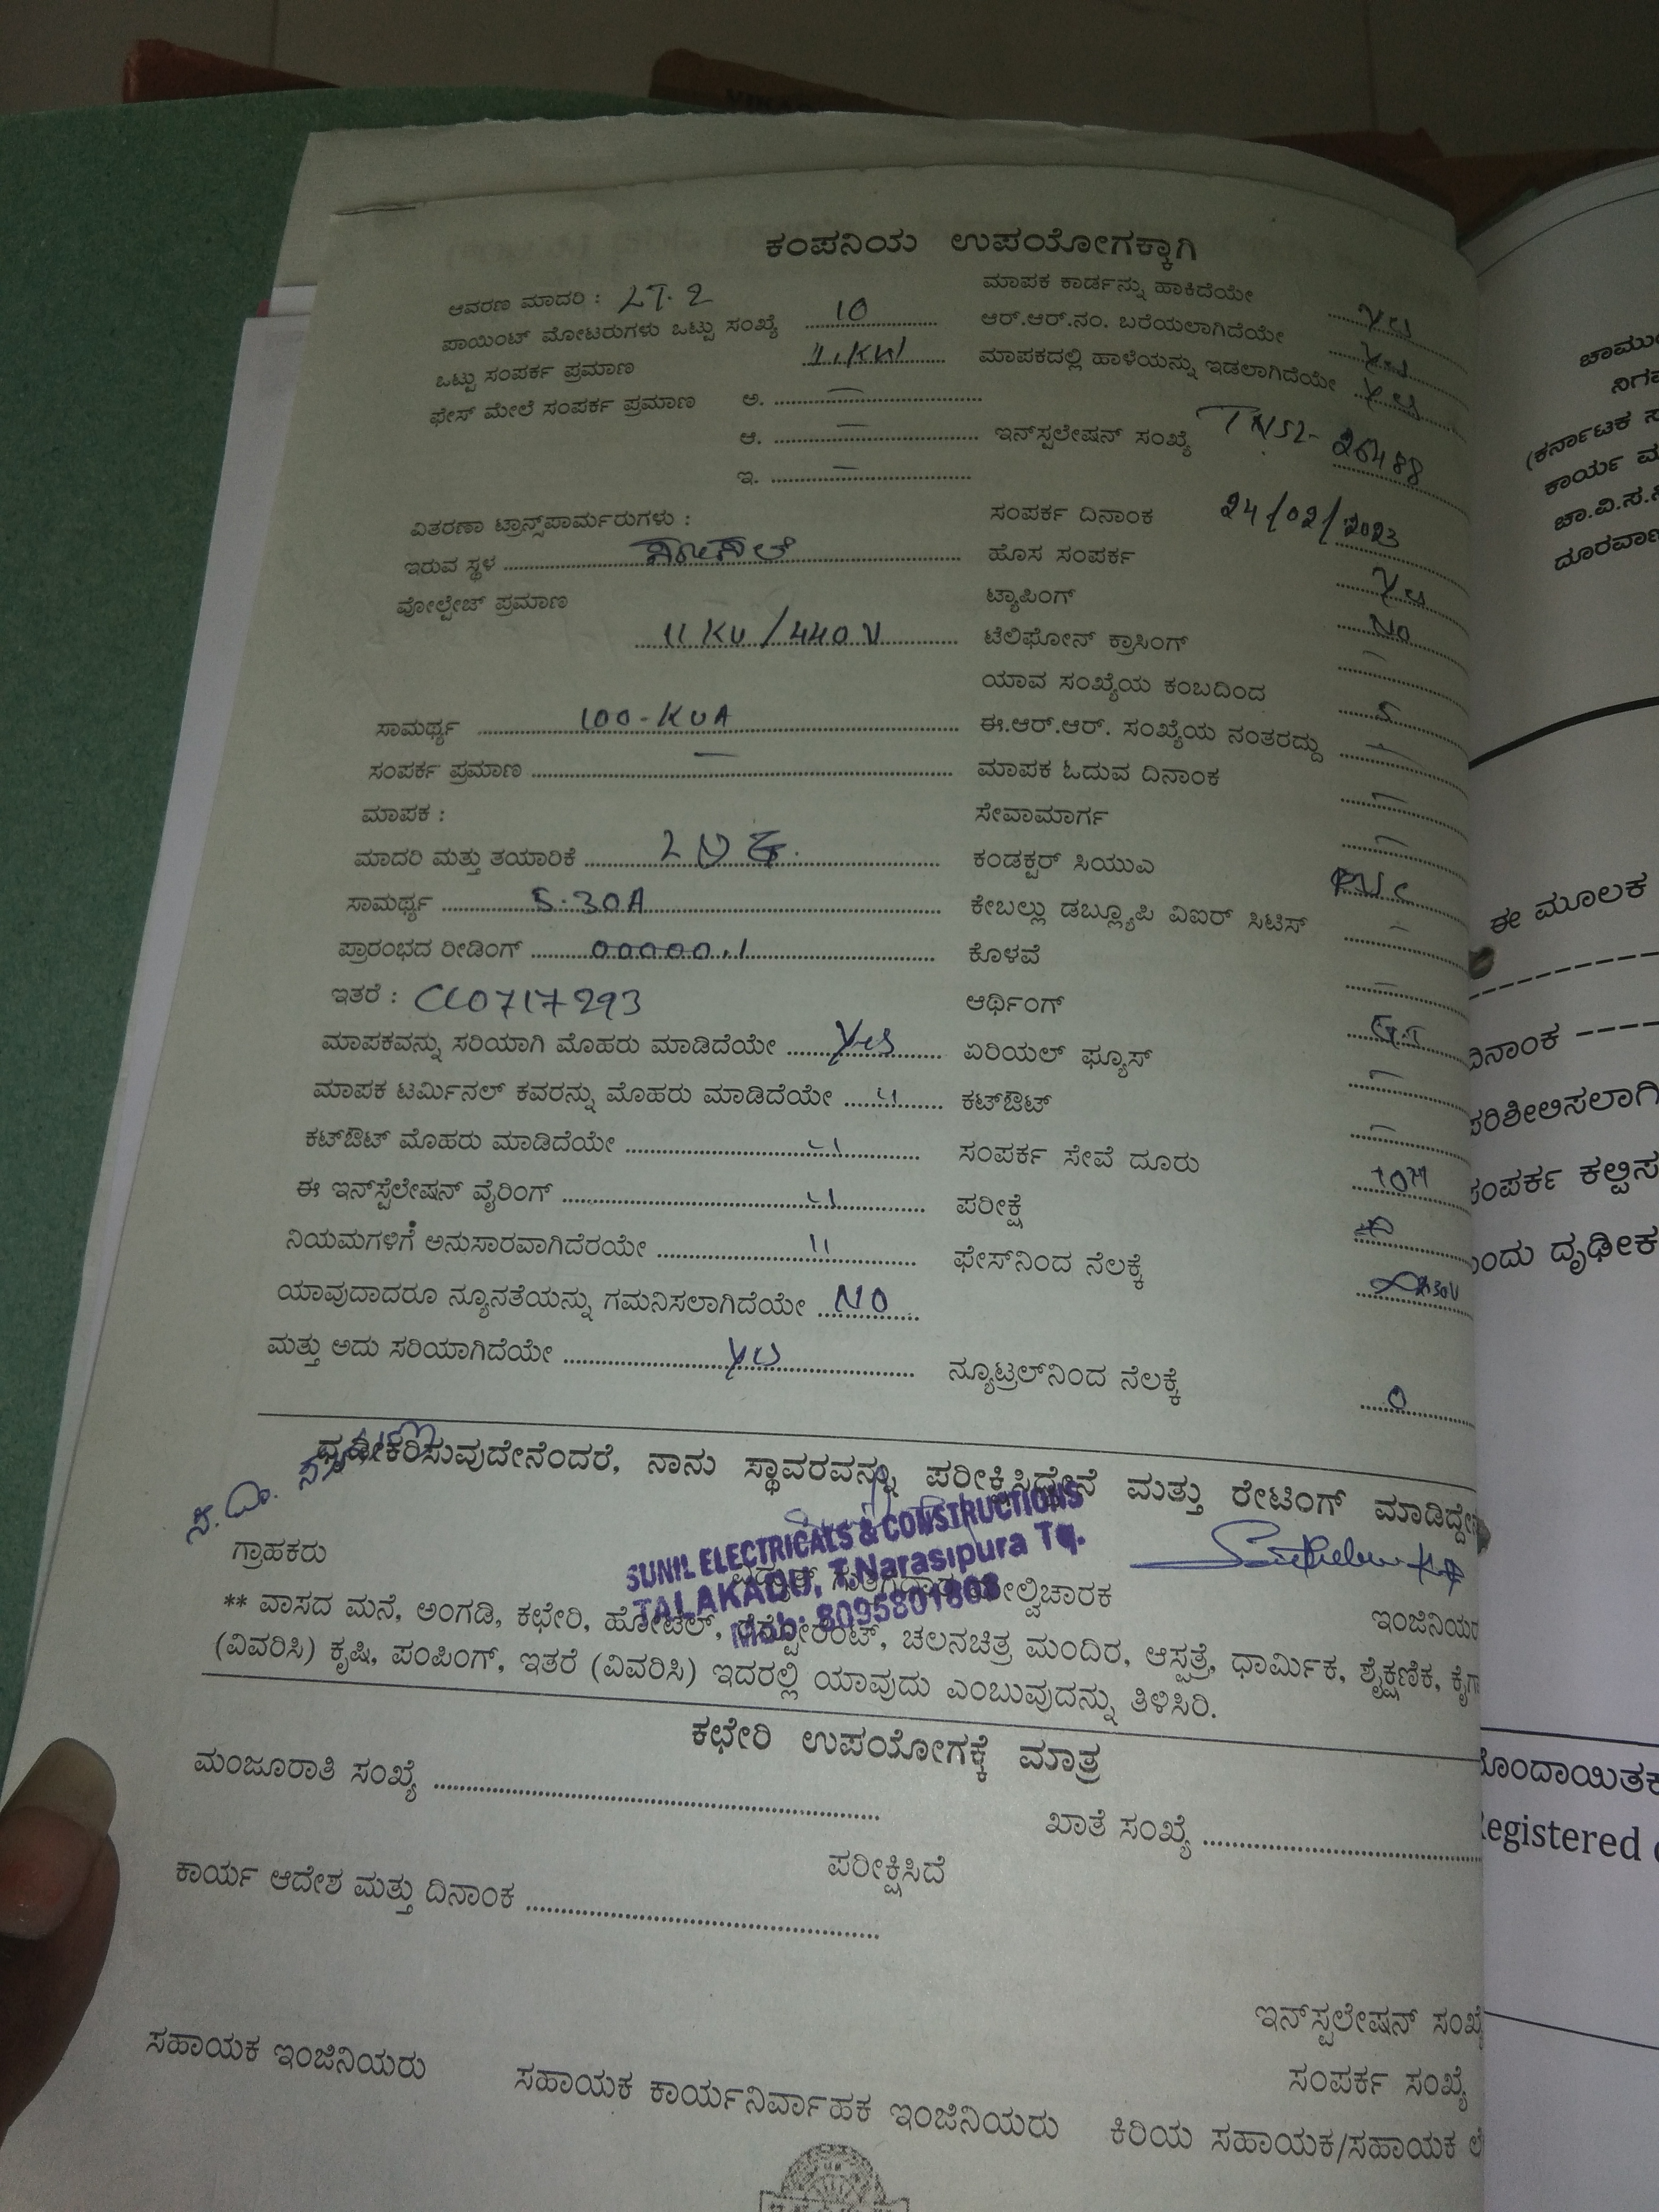 ಕಂಪನಿಯ ಉಪಯೋಗಕ್ಕಾಗಿ
ಆವರಣ ಮಾದರಿ : LT-2
ಪಾಯಿಂಟ್ ಮೋಟರುಗಳು ಒಟ್ಟು ಸಂಖ್ಯೆ 10
ಒಟ್ಟು ಸಂಪರ್ಕ ಪ್ರಮಾಣ 1.KW
ಫೇಸ್ ಮೇಲೆ ಸಂಪರ್ಕ ಪ್ರಮಾಣ ಅ. —
ಆ. —
ಇ. —
ವಿತರಣಾ ಟ್ರಾನ್ಸ್‌ಪಾರ್ಮರುಗಳು :
ಇರುವ ಸ್ಥಳ
ವೋಲ್ಟೇಜ್ ಪ್ರಮಾಣ
11 KV / 440 V
ಸಾಮರ್ಥ್ಯ 100-KVA
ಸಂಪರ್ಕ ಪ್ರಮಾಣ —
ಮಾಪಕ :
ಮಾದರಿ ಮತ್ತು ತಯಾರಿಕೆ
ಸಾಮರ್ಥ್ಯ 5-30A
ಪ್ರಾರಂಭದ ರೀಡಿಂಗ್ 00000.1
ಇತರೆ : CC0717293
ಮಾಪಕವನ್ನು ಸರಿಯಾಗಿ ಮೊಹರು ಮಾಡಿದೆಯೇ Yes
ಮಾಪಕ ಟರ್ಮಿನಲ್ ಕವರನ್ನು ಮೊಹರು ಮಾಡಿದೆಯೇ "
ಕಟ್‌ಔಟ್ ಮೊಹರು ಮಾಡಿದೆಯೇ "
ಈ ಇನ್‌ಸ್ಟೆಲೇಷನ್ ವೈರಿಂಗ್ "
ನಿಯಮಗಳಿಗೆ ಅನುಸಾರವಾಗಿದೆರಯೇ "
ಯಾವುದಾದರೂ ನ್ಯೂನತೆಯನ್ನು ಗಮನಿಸಲಾಗಿದೆಯೇ NO
ಮತ್ತು ಅದು ಸರಿಯಾಗಿದೆಯೇ Yes
ಮಾಪಕ ಕಾರ್ಡನ್ನು ಹಾಕಿದೆಯೇ Yes
ಆರ್.ಆರ್.ನಂ. ಬರೆಯಲಾಗಿದೆಯೇ Yes
ಮಾಪಕದಲ್ಲಿ ಹಾಳೆಯನ್ನು ಇಡಲಾಗಿದೆಯೇ Yes
ಇನ್‌ಸ್ಟಲೇಷನ್ ಸಂಖ್ಯೆ 26488
ಸಂಪರ್ಕ ದಿನಾಂಕ 24/02/2023
ಹೊಸ ಸಂಪರ್ಕ Yes
ಟ್ಯಾಪಿಂಗ್ No
ಟೆಲಿಫೋನ್ ಕ್ರಾಸಿಂಗ್ —
ಯಾವ ಸಂಖ್ಯೆಯ ಕಂಬದಿಂದ 5
ಈ.ಆರ್.ಆರ್. ಸಂಖ್ಯೆಯ ನಂತರದ್ದು —
ಮಾಪಕ ಓದುವ ದಿನಾಂಕ —
ಸೇವಾಮಾರ್ಗ —
ಕಂಡಕ್ಟರ್ ಸಿಯುಎ PVC
ಕೇಬಲ್ಲು ಡಬ್ಲ್ಯೂಪಿ ವಿಐರ್ ಸಿಟಿಸ್ —
ಕೊಳವೆ —
ಆರ್ಥಿಂಗ್
ಏರಿಯಲ್ ಫ್ಯೂಸ್ —
ಕಟ್‌ಔಟ್ —
ಸಂಪರ್ಕ ಸೇವೆ ದೂರು 10M
ಪರೀಕ್ಷೆ
ಫೇಸ್‌ನಿಂದ ನೆಲಕ್ಕೆ 230V
ನ್ಯೂಟ್ರಲ್‌ನಿಂದ ನೆಲಕ್ಕೆ 0
ಧೃಡೀಕರಿಸುವುದೇನೆಂದರೆ, ನಾನು ಸ್ಥಾವರವನ್ನು ಪರೀಕ್ಷಿಸಿದ್ದೇನೆ ಮತ್ತು ರೇಟಿಂಗ್ ಮಾಡಿದ್ದೇ
SUNIL ELECTRICALS & CONSTRUCTIONS
TALAKADU, T.Narasipura Tq.
Mob: 8095801808
ಗ್ರಾಹಕರು ಮೇಲ್ವಿಚಾರಕ ಇಂಜಿನಿಯರ
** ವಾಸದ ಮನೆ, ಅಂಗಡಿ, ಕಛೇರಿ, ಹೋಟೆಲ್, ರೆಸ್ಟೋರೆಂಟ್, ಚಲನಚಿತ್ರ ಮಂದಿರ, ಆಸ್ಪತ್ರೆ, ಧಾರ್ಮಿಕ, ಶೈಕ್ಷಣಿಕ, ಕೈಗಾ
(ವಿವರಿಸಿ) ಕೃಷಿ, ಪಂಪಿಂಗ್, ಇತರೆ (ವಿವರಿಸಿ) ಇದರಲ್ಲಿ ಯಾವುದು ಎಂಬುವುದನ್ನು ತಿಳಿಸಿರಿ.
ಕಛೇರಿ ಉಪಯೋಗಕ್ಕೆ ಮಾತ್ರ
ಮಂಜೂರಾತಿ ಸಂಖ್ಯೆ
ಖಾತೆ ಸಂಖ್ಯೆ
ಪರೀಕ್ಷಿಸಿದೆ
ಕಾರ್ಯ ಆದೇಶ ಮತ್ತು ದಿನಾಂಕ
ಇನ್‌ಸ್ಟಲೇಷನ್ ಸಂಖ್ಯೆ
ಸಂಪರ್ಕ ಸಂಖ್ಯೆ
ಸಹಾಯಕ ಇಂಜಿನಿಯರು ಸಹಾಯಕ ಕಾರ್ಯನಿರ್ವಾಹಕ ಇಂಜಿನಿಯರು ಕಿರಿಯ ಸಹಾಯಕ/ಸಹಾಯಕ ಲೆ
ಚಾಮು
ನಿಗ
(ಕರ್ನಾಟಕ ಸ
ಕಾರ್ಯ ಮ
ಚಾ.ವಿ.ಸ.ನಿ
ದೂರವಾಣ
ಈ ಮೂಲಕ
ದಿನಾಂಕ
ಪರಿಶೀಲಿಸಲಾಗಿ
ಸಂಪರ್ಕ ಕಲ್ಪಿಸ
ಎಂದು ದೃಢೀಕ
ನೊಂದಾಯಿತ
Registered